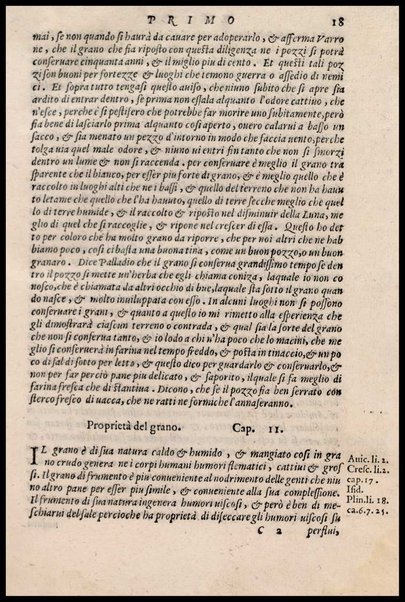 PRIMO 18
mai, se non quando si haurà da cauare per adoperarlo, & afferma Varro
ne, che il grano che sia riposto con questa diligenza ne i pozzi si potrà
conseruare cinquanta anni, & il miglio piu di cento. Et questi tali poz
zi son buoni per fortezze & luoghi che temono guerra o assedio di nemi
ci. Et sopra tutto tengasi questo auiso, che niuno subito che si apre sia
ardito di entrar dentro, se prima non essala alquanto l'odore cattiuo, che
n'esce, perche è si pestifero che potrebbe far morire uno subitamente, però
sia bene di lasciarlo prima alquanto cosi aperto, ouero calarui a basso un
sacco, & sia menato un pezzo d'intorno in modo che faccia uento, perche
tolga uia quel male odore, & niuno ni entri fin tanto che non si smorzi
dentro un lume & non si raccenda. per conseruare è meglio il grano tra
sparente che il bianco, per esser piu forte di grano, & è meglio quello che è
raccolto in luoghi alti che ne i bassi, & quello del terreno che non ha hauu
to letame che quello che l'ha hauuto, quello di terre secche meglio che quel
lo di terre humide, & il raccolto & riposto nel disminuir della Luna, me
glio di quel che si raccoglie, & ripone nel crescer di essa. Questo ho det
to per coloro che ha molto grano da riporre, che per noi altri che ne hab
biamo poco, cosi ci basta una buona tina, come un buon pozzo, o un buon
granaro. Dice Palladio che il grano si conserua grandissimo tempo se den
tro il pozzo si mette un'herba che egli chiama coniza, laquale io non co
nosco, che è chiamata da altri occhio di bue, laquale sia sotto il grano quan
do nasce, & molto inuiluppata con esso. In alcuni luoghi non si possono
conseruare i grani, & quanto a questo io mi rimetto alla esperienza che
gli dimostrarà ciascun terreno o contrada, & qual sia la sorte del grano
che non si conserua tanto, & io lodo a chi n'ha poco che lo macini, che me
glio si conseruerà in farina nel tempo freddo, & posta in tinaccio, & un po
co di sal di sotto per letta, & questo dico per guardarlo & conseruarlo, &
non per far perciò pane piu delicato, & saporito, ilquale si fa meglio di
farina fresca che di stantiua. Dicono, che se il pozzo sia ben serrato con
sterco fresco di uacca, che ne ratti ne formiche l'annaseranno.
Proprietà del grano. Cap. 11.
IL grano è di sua natura caldo & humido, & mangiato cosi in gra
no crudo genera ne i corpi humani humori flematici, cattiui & gros
si. Il grano di frumento è piu conueniente al nodrimento delle genti che niu
no altro pane per esser piu simile, & conueniente alla sua complessione.
Il frumento di sua natura ingenera humori uiscosi, & però è ben di me-
schiarui del sale percioche ha proprietà di diseccare gli humori uiscosi su
C 2 perflui,
Auic. li. 2.
Cresc. li. 2.
cap. 17.
Isid.
Plin. li. 18.
ca. 6. 7. 25.